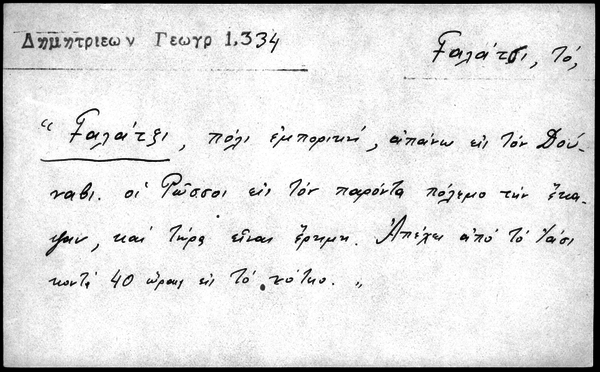 Δημητριεων Γεωγρ 1,334
Γαλάτσι, τό,
“Γαλάτζι, πόλι ἐμπορική, ἀπάνω εἰς τόν Δού-
ναβι. οἱ Ρῶσσοι εἰς τόν παρόντα πόλεμο τήν ἔκα-
ψαν, καί τώρα εἶναι ἔρημη. Ἀπέχει ἀπό τό Γιάσι
κοντά 40 ὥραις εἰς τό νότιο.„